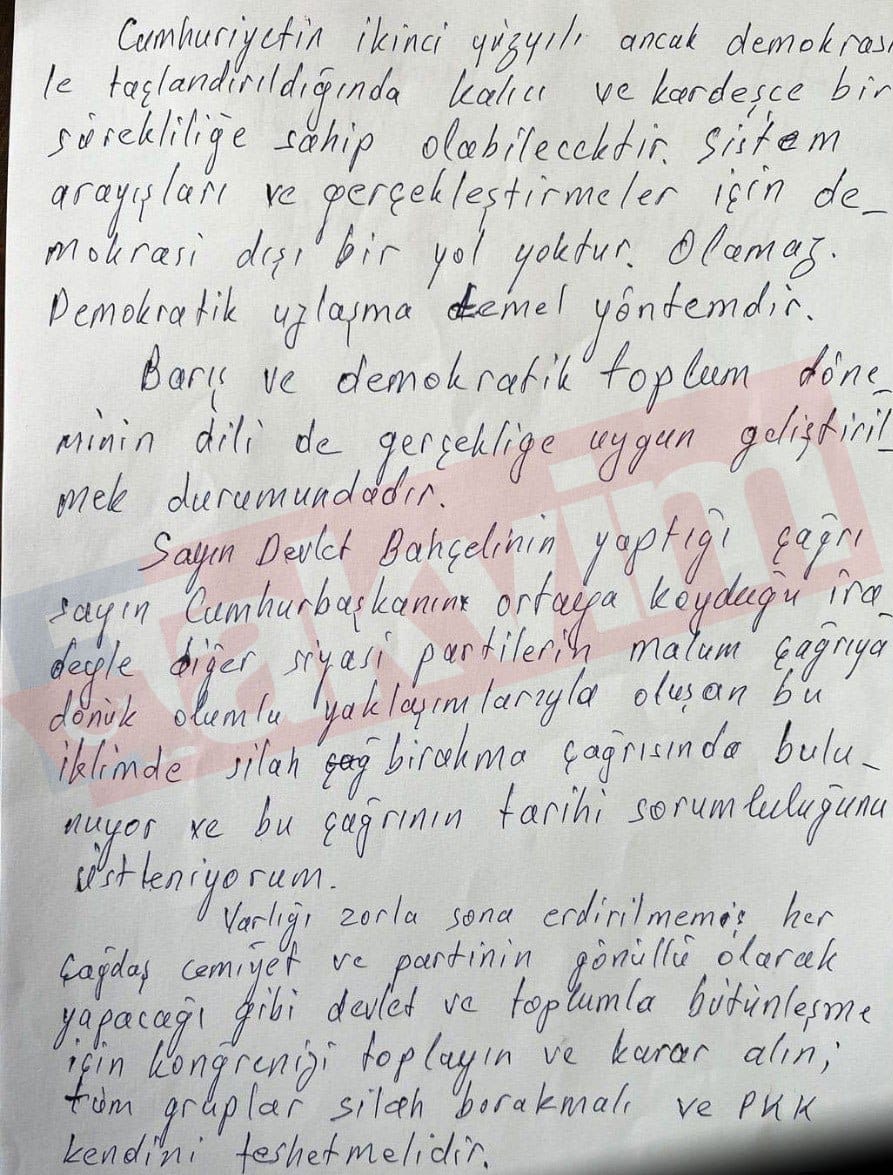 Cumhuriyetin ikinci yüzyılı ancak demokrasi
le taçlandırıldığında kalıcı ve kardeşçe bir
sürekliliğe sahip olabilecektir. Sistem
arayışları ve gerçekleştirmeler için de_
mokrasi dışı bir yol yoktur. Olamaz.
Demokratik uzlaşma temel yöntemdir.
Barış ve demokratik toplum döne_
minin dili de gerçekliğe uygun geliştiril_
mek durumundadır.
Sayın Devlet Bahçelinin yaptığı çağrı
sayın Cumhurbaşkanını ortaya koyduğu ira_
deyle diğer siyasi partilerin malum çağrıya
dönük olumlu yaklaşımlarıyla oluşan bu
iklimde silah çağ bırakma çağrısında bulu_
nuyor ve bu çağrının tarihi sorumluluğunu
üstleniyorum.
Varlığı zorla sona erdirilmemiş her
çağdaş cemiyet ve partinin gönüllü olarak
yapacağı gibi devlet ve toplumla bütünleşme
için kongrenizi toplayın ve karar alın;
tüm gruplar silah bırakmalı ve PKK
kendini feshetmelidir.
takvim